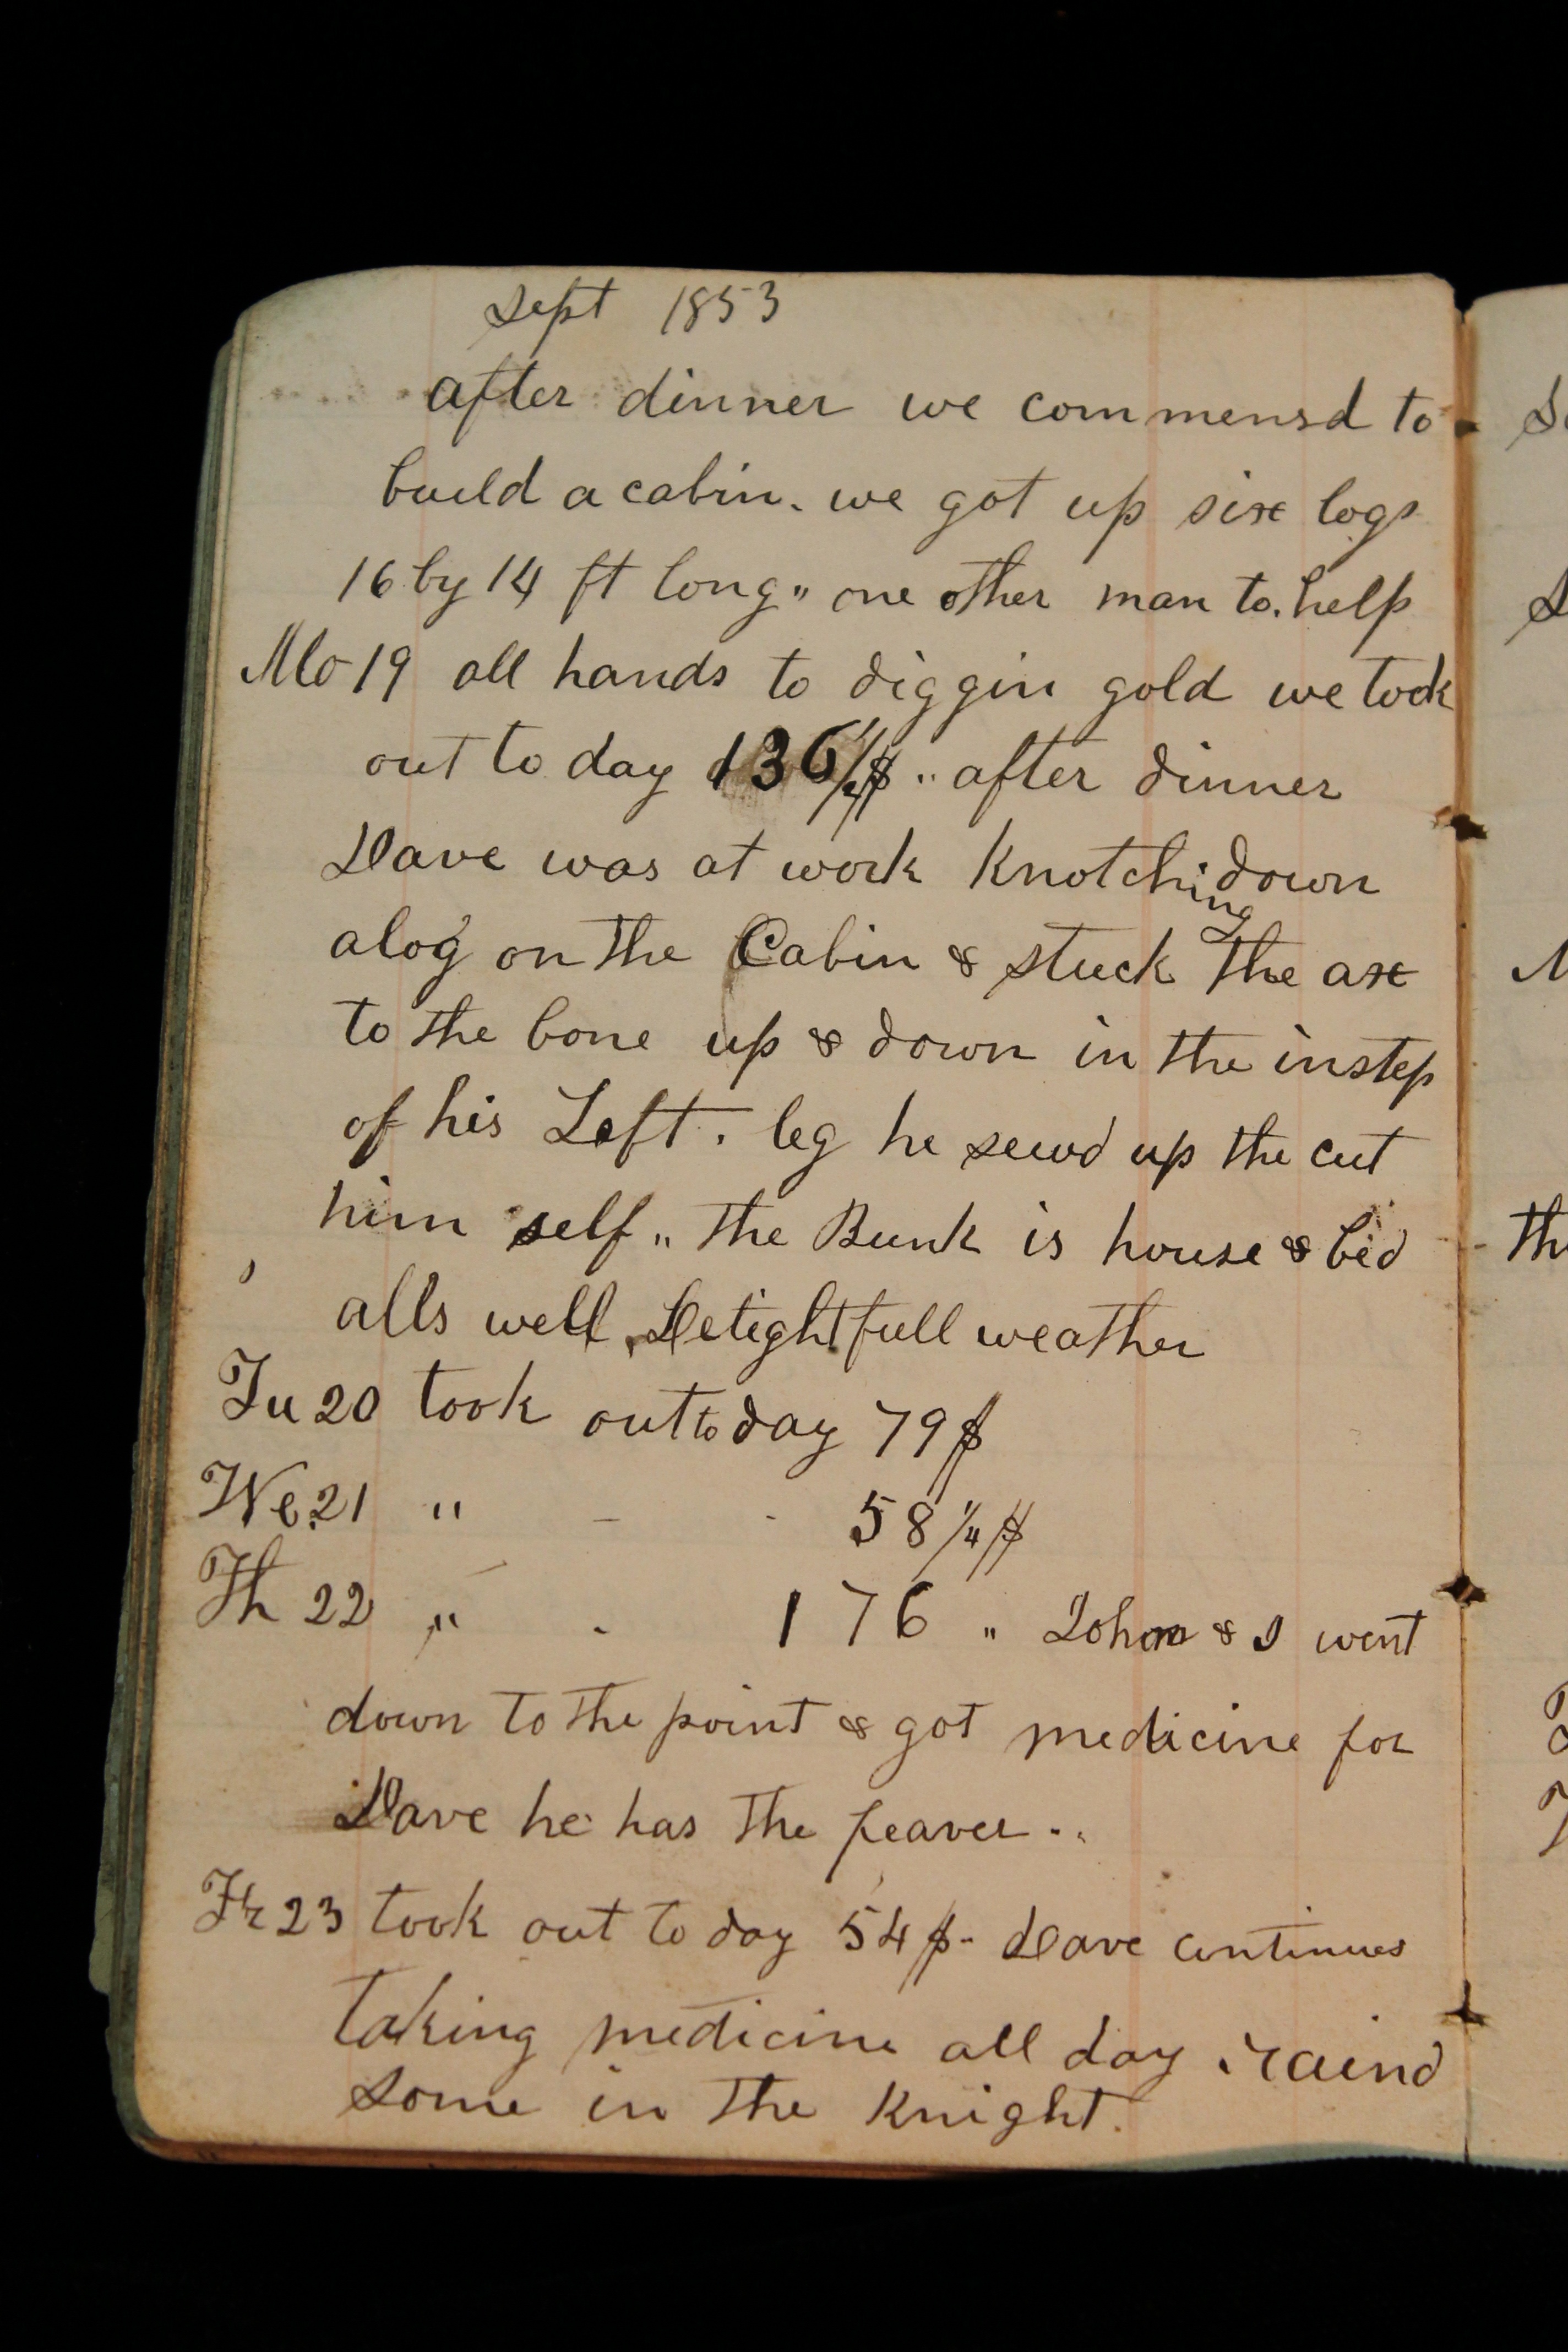 Sept 1853
after dinner we commensd to
build a cabin. we got up six logs
16 by 14 ft long " one other man to help
Mo 19 all hands to diggin gold we took
out to day 136 1/2 $ " after dinner
Dave was at work Knotching down
a log on the Cabin & stuck the axe
to the bone up & down in the instep
of his Left. leg he sewd up the cut
him self " the Bunk is house & bed
alls well Delightfull weather
Tu 20 took out to day 79 $
We 21 " - - 58 1/4 $
Th 22 " - 176 " John & I went
down to the point & got medicine for
Dave he has the feaver ..
Fr 23 took out to day 54 $ - Dave continues
taking medicine all day . raind
some in the Knight.